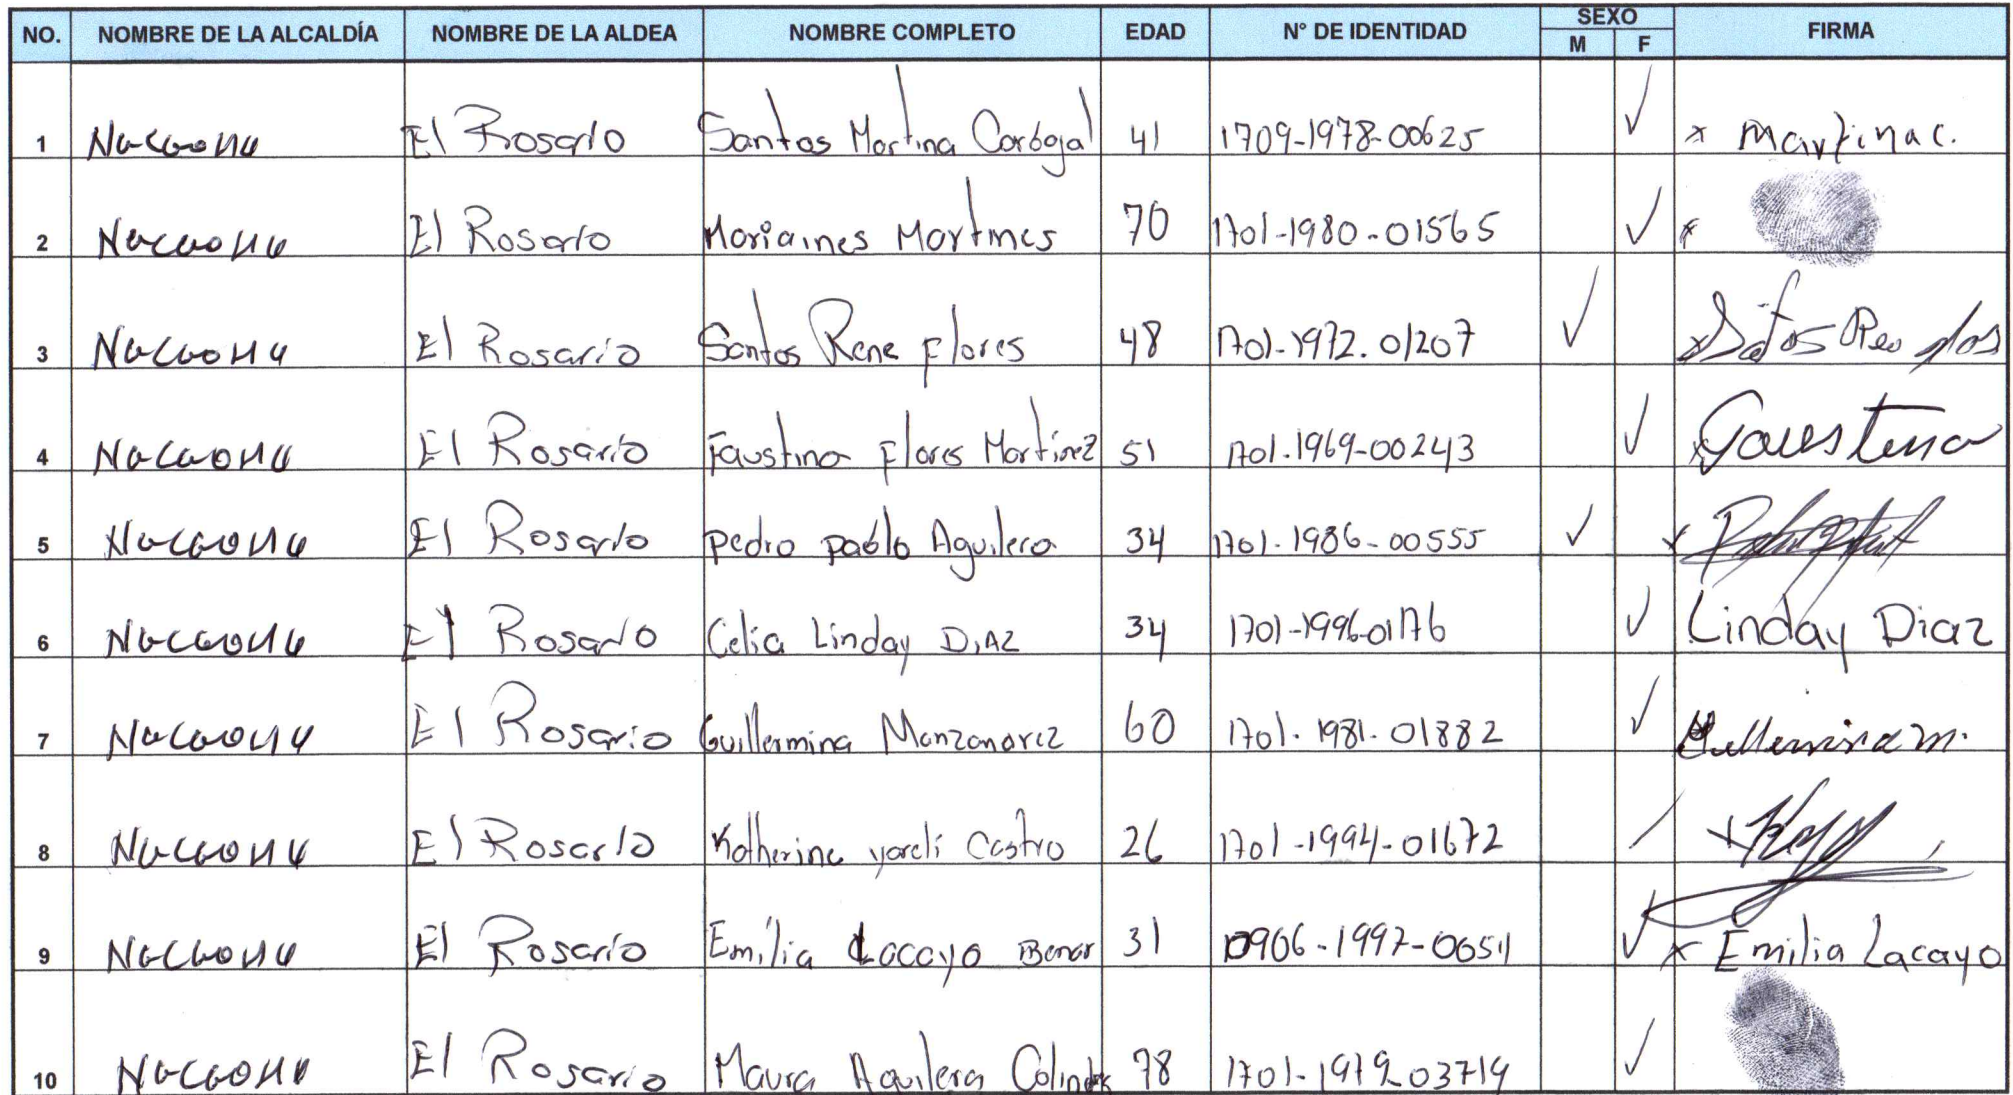 NO. NOMBRE DE LA ALCALDÍA NOMBRE DE LA ALDEA NOMBRE COMPLETO EDAD N° DE IDENTIDAD SEXO FIRMA
M F
1 Nacaome El Rosario Santos Martina Carbajal 41 1709-1978-00625 ✓ x Martina c.
2 Nacaome El Rosario Mariaines Martines 70 1701-1980-01565 ✓ x
3 Nacaome El Rosario Santos Rene Flores 48 1701-1972.01207 ✓ x
4 Nacaome El Rosario Faustina Flores Martinez 51 1701.1969-00243 ✓ x
5 Nacaome El Rosario pedro pablo Aguilera 34 1701-1986-00555 ✓ x
6 Nacaome El Rosario Celia Linday DIAZ 34 1701-1996-01176 ✓ Linday Diaz
7 Nacaome El Rosario Guillermina Manzanarez 60 1701-1981-01882 ✓ Guillermina m.
8 Nacaome El Rosario Katherine yareli Castro 26 1701-1994-01672 x
9 Nacaome El Rosario Emilia Lacayo 31 0906-1997-00511 ✓ x Emilia Lacayo
10 Nacaome El Rosario Maura Aguilera Colindres 78 1701-1979-03719 ✓